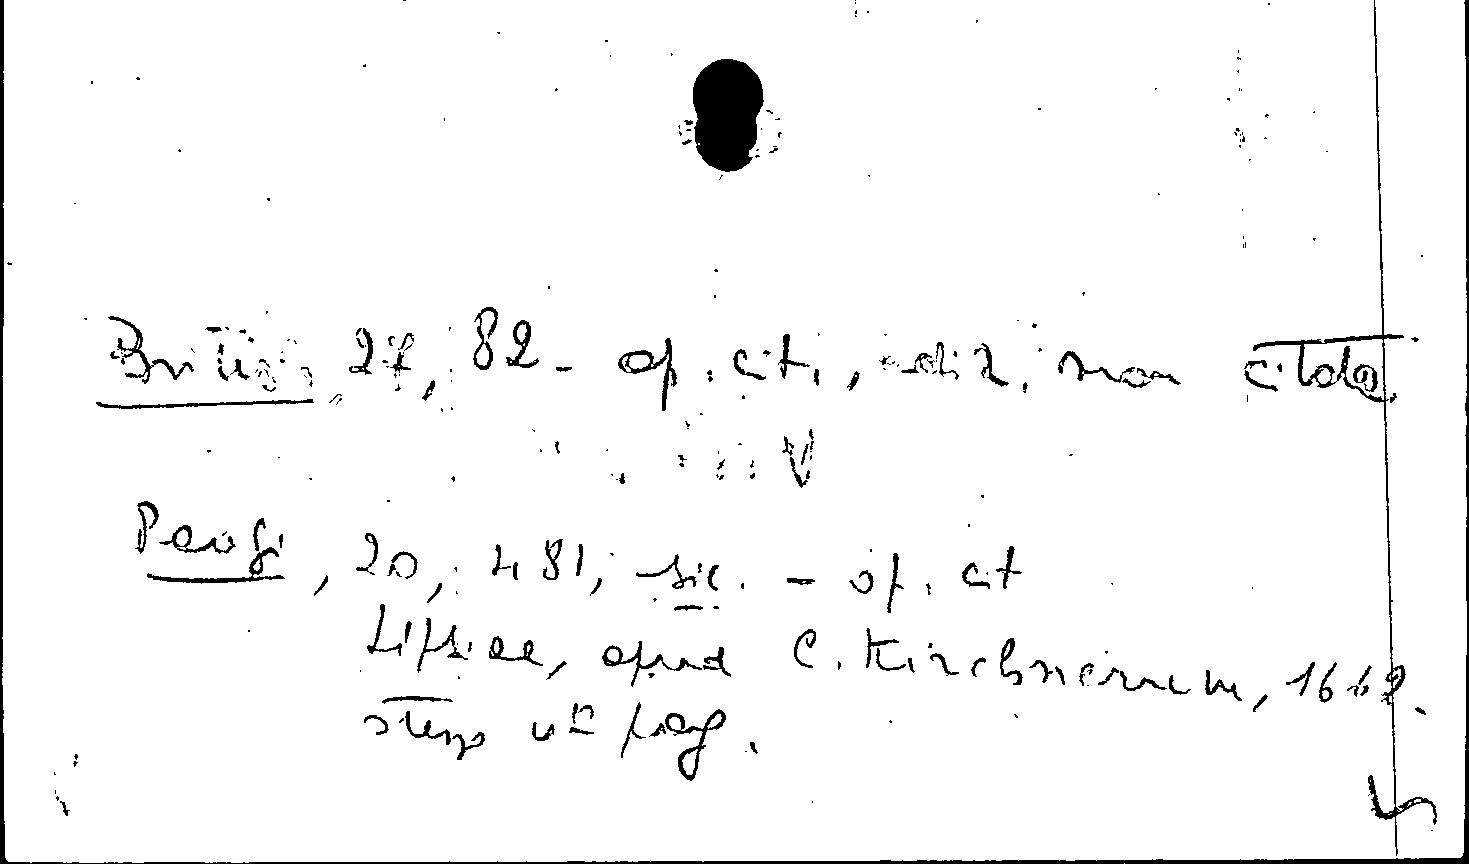 British, 27, 82 - op. cit., ediz. non citata
V
Parigi, 20, 481, sic. - op. cit
Lipsiae, apud C. Kirchnerum, 1662.
stesso n° pag.